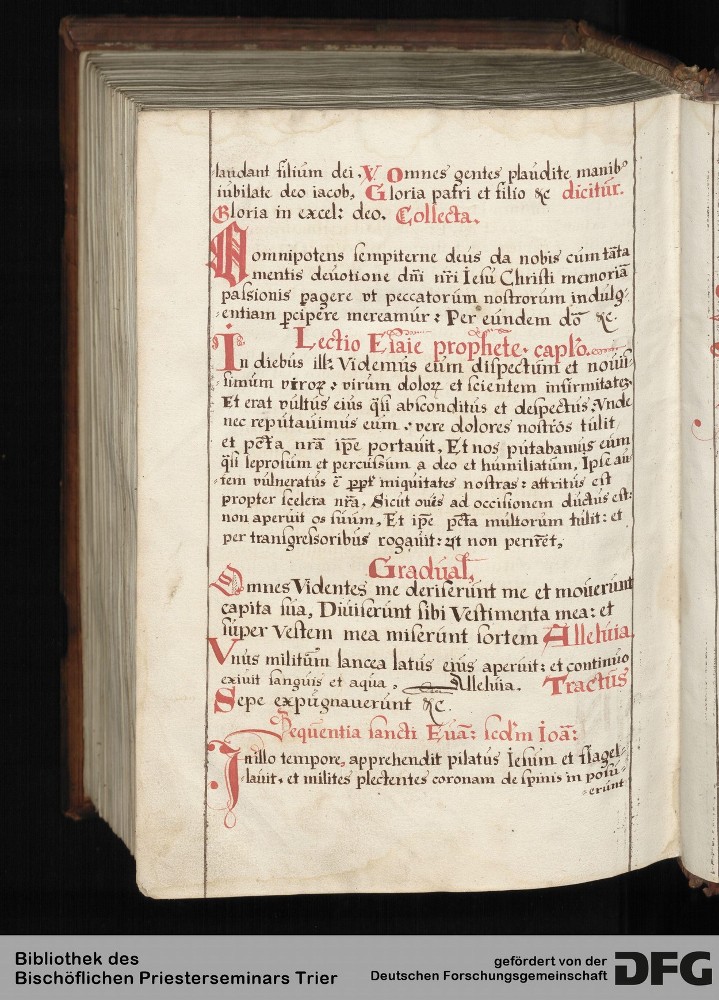 laudant filium dei. V Omnes gentes plaudite manibꝰ
iubilate deo iacob, Gloria patri et filio &c dicitur.
Gloria in excel: deo. Collecta.
omnipotens sempiterne deus da nobis cum tāta
mentis deuotione dñi nr̃i Iesu Christi memoriā
passionis pagere vt peccatorum nostrorum indulg-
-entiam ꝑcipere mereamur: Per eundem dō &c.
Lectio Esaie prophete. caplo.
In diebus ill: Videmus eum dispectum et nouis-
simum viroꝝ: virum doloꝝ et scientem infirmitatē
Et erat vultus eius q̃si absconditus et despectus: Vnde
nec reputauimus eum: vere dolores nostros tulit
et pc̃ta nr̃a ip̃e portauit, Et nos putabamus eum
q̃si leprosum et percussum a deo et humiliatum, Ipse au-
tem vulneratus ē ꝓpt iniquitates nostras: attritus est
propter scelera nr̃a. Sicut ouis ad occisionem ductus est:
non aperuit os suum, Et ip̃e pc̃ta multorum tulit: et
per transgressoribus rogauit: vt non perirēt,
Gradual,
Omnes Videntes me deriserunt me et mouerunt
capita sua, Diuiserunt sibi Vestimenta mea: et
super Vestem mea miserunt sortem Alleluia
Vnus militum lancea latus eius aperuit: et continuo
exiuit sanguis et aqua, Alleluia. Tractus
Sepe expugnauerunt &c.
Sequentia sancti Euã: scdm̃ Ioã:
In illo tempore, apprehendit pilatus Iesum et flagel-
-lauit. et milites plectentes coronam de spinis in posu-
-erunt
Bibliothek des
Bischöflichen Priesterseminars Trier
gefördert von der
Deutschen Forschungsgemeinschaft DFG